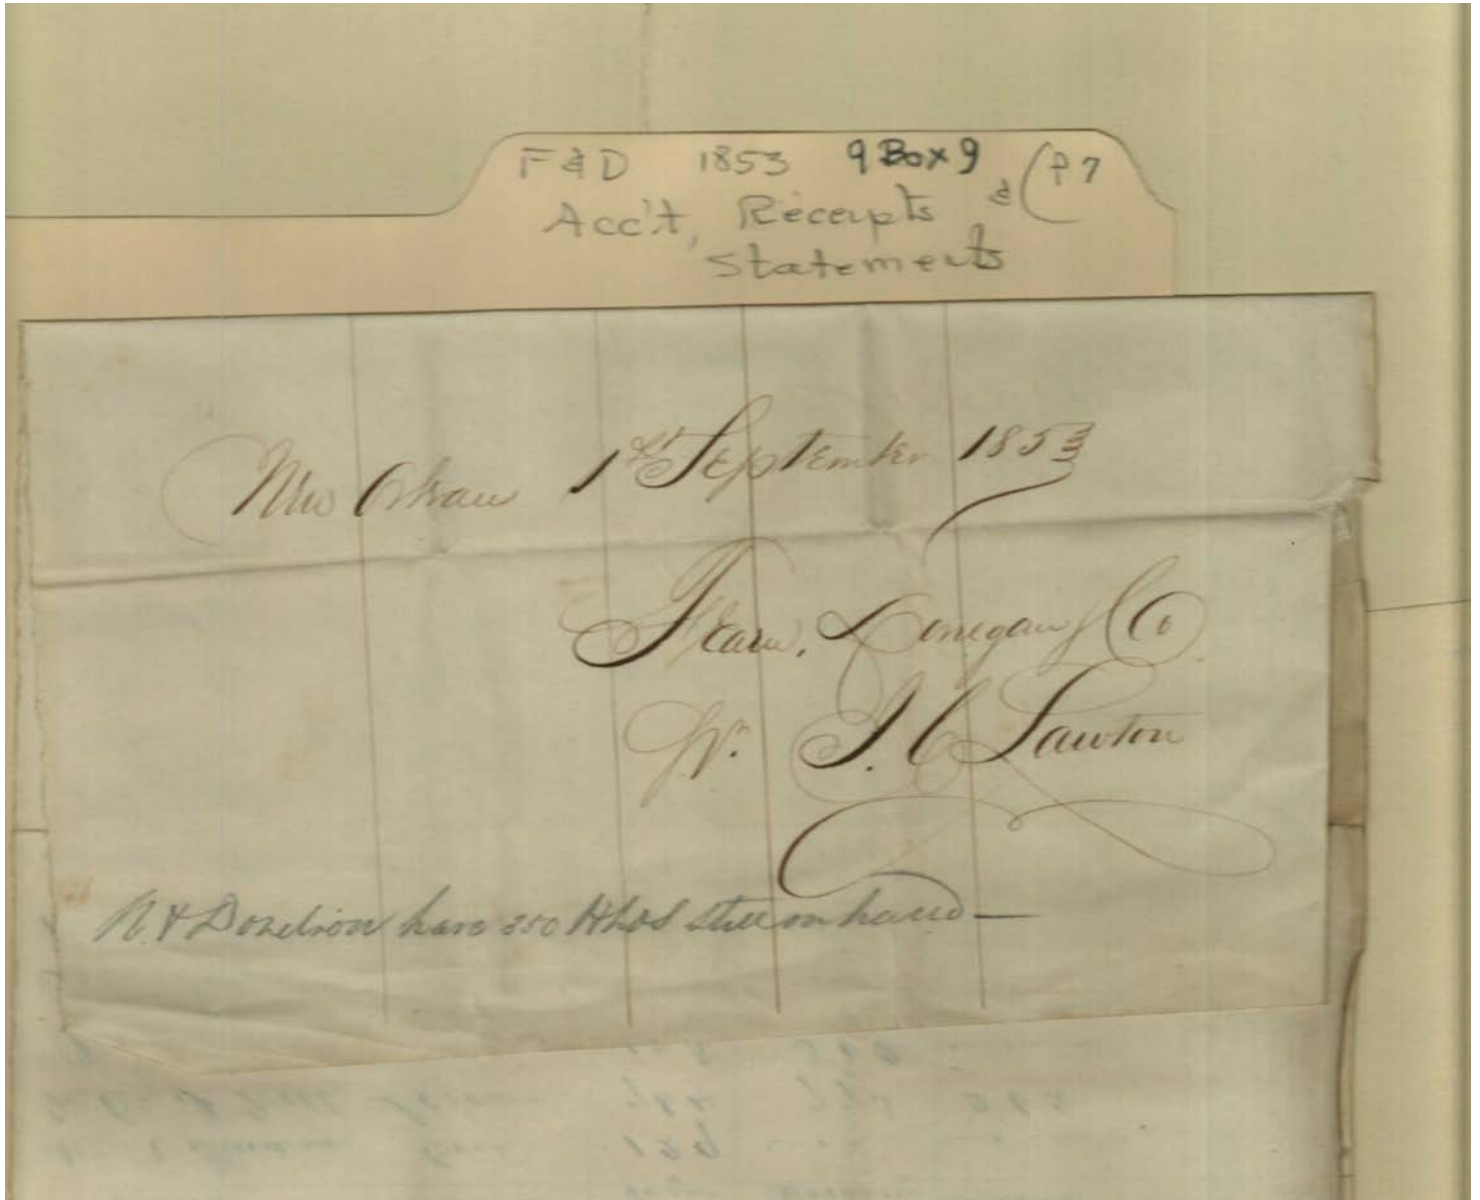 F & D 1853 9 Box 9 & (P 7
Acc't, Receipts
Statements
New Orleans 1st September 1853
Fearn, Donegan & Co.
Pr. S. C Lawton
N. & Donelson have 350 Hhds still on hand —